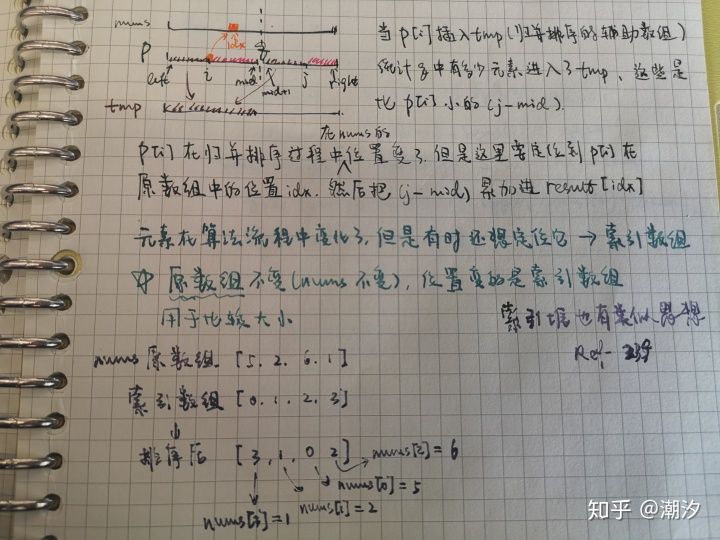 nums
idx
P
left i mid mid+1 j right
tmp
当 p[i] 插入 tmp (归并排序的辅助数组)
统计 中有多少元素进入了 tmp、这些是
比 p[i] 小的 (j-mid).
在nums的
p[i] 在归并排序过程中位置变了, 但是这里要定位到 p[i] 在
原数组中的位置 idx. 然后把 (j-mid) 累加进 result[idx]
元素在算法流程中变化了, 但是有时还想定位它 → 索引数组
☆ 原数组不变 (nums 不变), 位置变的是索引数组
用于比较大小
索引堆也有类似思想
Ref- 239
nums 原数组 [5. 2. 6. 1]
索引数组 [0. 1. 2. 3]
↓
排序后 [3, 1, 0 2] → nums[2] = 6
nums[0] = 5
nums[1] = 2
nums[3] = 1
知乎 @潮汐